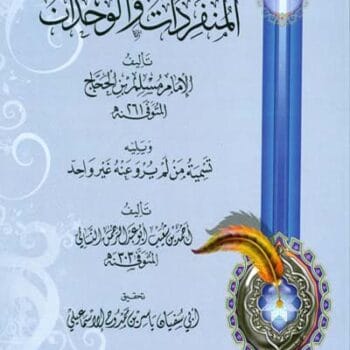 المنفردات والوحدان
تأليف
الإمام مسلم بن الحجاج
المتوفى ٢٦١هـ
ويليه
تسمية من لم يرو عنه غير واحد
تأليف
أحمد بن شعيب أبو عبد الرحمن النسائي
المتوفى ٣٠٣هـ
تحقيق
أبي سفيان ياسر بن ممدوح الإسماعيلي